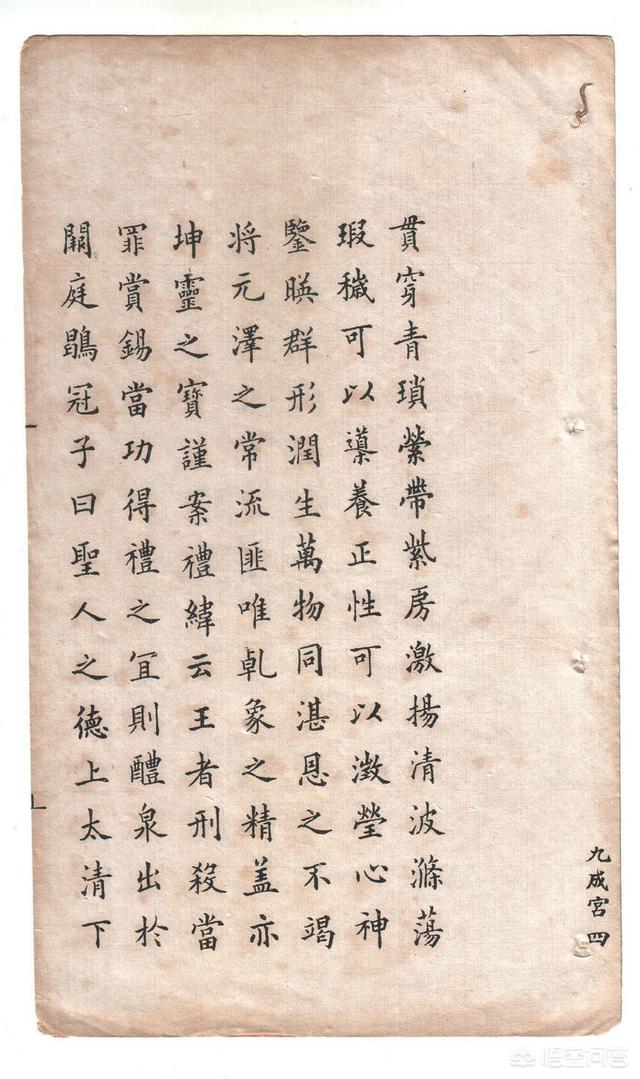 貫穿青瑣縈帶紫房激揚清波滌蕩
瑕穢可以導養正性可以澂瑩心神
鑒暎群形潤生萬物同湛恩之不竭
將元澤之常流匪唯乹象之精盖亦
坤靈之寶謹案禮緯云王者刑殺當
罪賞錫當功得禮之冝則醴泉出於
闕庭鶡冠子曰聖人之德上太清下
九成宮 四
悟空问答